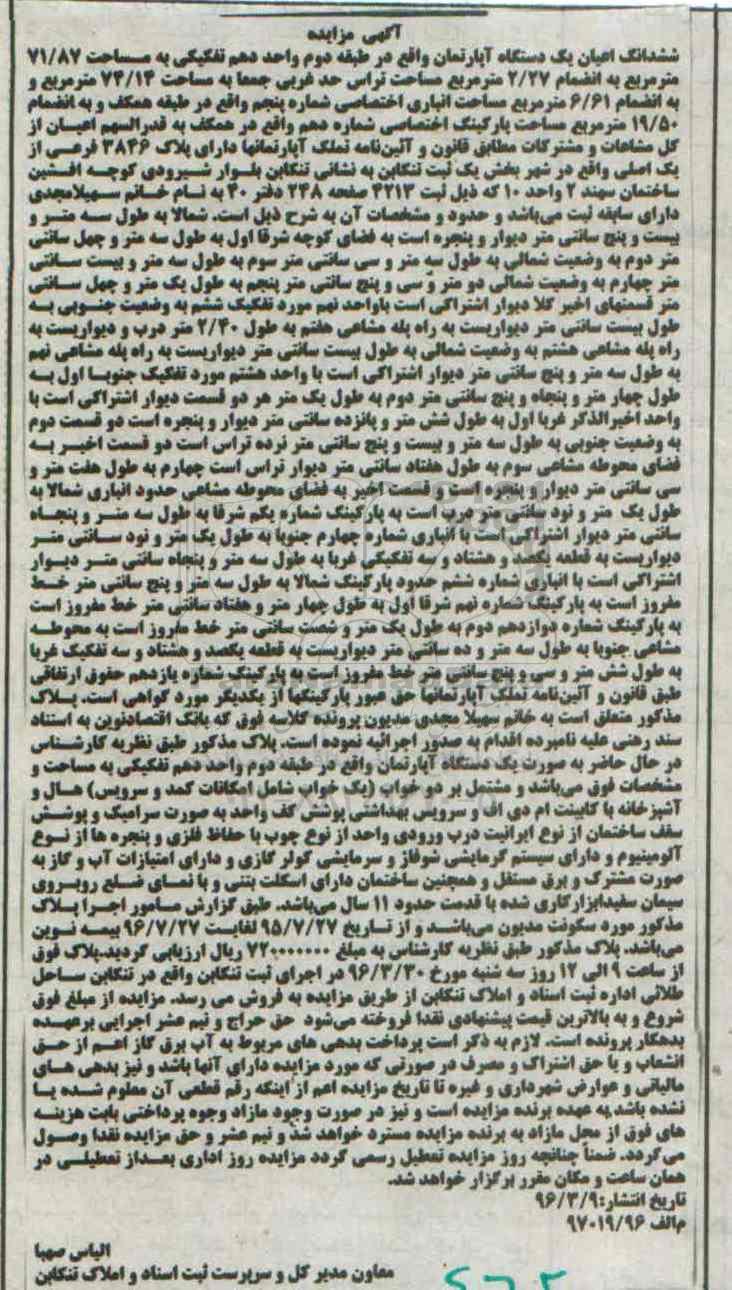 آگهی مزایده
ششدانگ اعیان یک دستگاه آپارتمان واقع در طبقه دوم واحد دهم تفکیکی به مساحت ۷۱/۸۷
مترمربع به انضمام ۲/۲۷ مترمربع مساحت تراس حد غربی جمعا به مساحت ۷۴/۱۴ مترمربع و
به انضمام ۶/۶۱ مترمربع مساحت انباری اختصاصی شماره پنجم واقع در طبقه همکف و به انضمام
۱۹/۵۰ مترمربع مساحت پارکینگ اختصاصی شماره دهم واقع در همکف به قدرالسهم اعیان از
کل مشاعات و مشترکات مطابق قانون و آئین‌نامه تملک آپارتمانها دارای پلاک ۳۸۴۶ فرعی از
یک اصلی واقع در شهر بخش یک ثبت تنکابن به نشانی تنکابن بلوار شیرودی کوچه افشین
ساختمان سهند ۲ واحد ۱۰ که ذیل ثبت ۴۲۱۳ صفحه ۲۴۸ دفتر ۴۰ به نام خانم سهیلامجدی
دارای سابقه ثبت می‌باشد و حدود و مشخصات آن به شرح ذیل است. شمالا به طول سه متر و
بیست و پنج سانتی متر دیوار و پنجره است به فضای کوچه شرقا اول به طول سه متر و چهل سانتی
متر دوم به وضعیت شمالی به طول سه متر و سی سانتی متر سوم به طول سه متر و بیست سانتی
متر چهارم به وضعیت شمالی دو متر و سی و پنج سانتی متر پنجم به طول یک متر و چهل سانتی
متر قسمتهای اخیر کلا دیوار اشتراکی است باواحد نهم مورد تفکیک ششم به وضعیت جنوبی به
طول بیست سانتی متر دیواریست به راه پله مشاعی هفتم به طول ۲/۴۰ متر درب و دیواریست به
راه پله مشاعی هشتم به وضعیت شمالی به طول بیست سانتی متر دیواریست به راه پله مشاعی نهم
به طول سه متر و پنج سانتی متر دیوار اشتراکی است با واحد هشتم مورد تفکیک جنوبا اول به
طول چهار متر و پنجاه و پنج سانتی متر دوم به طول یک متر هر دو قسمت دیوار اشتراکی است با
واحد اخیرالذکر غربا اول به طول شش متر و پانزده سانتی متر دیوار و پنجره است دو قسمت دوم
به وضعیت جنوبی به طول سه متر و بیست و پنج سانتی متر نرده تراس است دو قسمت اخیر به
فضای محوطه مشاعی سوم به طول هفتاد سانتی متر دیوار تراس است چهارم به طول هفت متر و
سی سانتی متر دیوار و پنجره است و قسمت اخیر به فضای محوطه مشاعی حدود انباری شمالا به
طول یک متر و نود سانتی متر درب است به پارکینگ شماره یکم شرقا به طول سه متر و پنجاه
سانتی متر دیوار اشتراکی است با انباری شماره چهارم جنوبا به طول یک متر و نود سانتی متر
دیواریست به قطعه یکصد و هشتاد و سه تفکیکی غربا به طول سه متر و پنجاه سانتی متر دیوار
اشتراکی است با انباری شماره ششم حدود پارکینگ شمالا به طول سه متر و پنج سانتی متر خط
مفروز است به پارکینگ شماره نهم شرقا اول به طول چهار متر و هفتاد سانتی متر خط مفروز است
به پارکینگ شماره دوازدهم دوم به طول یک متر و شصت سانتی متر خط مفروز است به محوطه
مشاعی جنوبا به طول سه متر و ده سانتی متر دیواریست به قطعه یکصد و هشتاد و سه تفکیک غربا
به طول شش متر و سی و پنج سانتی متر خط مفروز است به پارکینگ شماره یازدهم حقوق ارتفاقی
طبق قانون و آئین‌نامه تملک آپارتمانها حق عبور پارکینگها از یکدیگر مورد گواهی است. پلاک
مذکور متعلق است به خانم سهیلا مجدی مدیون پرونده کلاسه فوق که بانک اقتصادنوین به استناد
سند رهنی علیه نامبرده اقدام به صدور اجرائیه نموده است. پلاک مذکور طبق نظریه کارشناس
در حال حاضر به صورت یک دستگاه آپارتمان واقع در طبقه دوم واحد دهم تفکیکی به مساحت و
مشخصات فوق می‌باشد و مشتمل بر دو خواب (یک خواب شامل امکانات کمد و سرویس) هال و
آشپزخانه با کابینت ام دی اف و سرویس بهداشتی پوشش کف واحد به صورت سرامیک و پوشش
سقف ساختمان از نوع ایرانیت درب ورودی واحد از نوع چوب با حفاظ فلزی و پنجره ها از نوع
آلومینیوم و دارای سیستم گرمایشی شوفاژ و سرمایشی کولر گازی و دارای امتیازات آب و گاز به
صورت مشترک و برق مستقل و همچنین ساختمان دارای اسکلت بتنی و با نمای ضلع روبروی
سیمان سفیدابزارکاری شده با قدمت حدود ۱۱ سال می‌باشد. طبق گزارش مامور اجرا پلاک
مذکور مورد سکونت مدیون می‌باشد و از تاریخ ۹۵/۷/۲۷ لغایت ۹۶/۷/۲۷ بیمه نوین
می‌باشد. پلاک مذکور طبق نظریه کارشناس به مبلغ ۷۲۰۰۰۰۰۰۰ ریال ارزیابی گردید.پلاک فوق
از ساعت ۹ الی ۱۲ روز سه شنبه مورخ ۹۶/۳/۳۰ در اجرای ثبت تنکابن واقع در تنکابن ساحل
طلائی اداره ثبت اسناد و املاک تنکابن از طریق مزایده به فروش می رسد. مزایده از مبلغ فوق
شروع و به بالاترین قیمت پیشنهادی نقدا فروخته می‌شود حق حراج و نیم عشر اجرایی برعهده
بدهکار پرونده است. لازم به ذکر است پرداخت بدهی های مربوط به آب برق گاز اعم از حق
انشعاب و یا حق اشتراک و مصرف در صورتی که مورد مزایده دارای آنها باشد و نیز بدهی های
مالیاتی و عوارض شهرداری و غیره تا تاریخ مزایده اعم از اینکه رقم قطعی آن معلوم شده یا
نشده باشد به عهده برنده مزایده است و نیز در صورت وجود مازاد وجوه پرداختی بابت هزینه
های فوق از محل مازاد به برنده مزایده مسترد خواهد شد و نیم عشر و حق مزایده نقدا وصول
می گردد. ضمناً چنانچه روز مزایده تعطیل رسمی گردد مزایده روز اداری بعداز تعطیلی در
همان ساعت و مکان مقرر برگزار خواهد شد.
تاریخ انتشار:۹۶/۳/۹
م‌الف ۹۷۰۱۹/۹۶
الیاس صهبا
معاون مدیر کل و سرپرست ثبت اسناد و املاک تنکابن